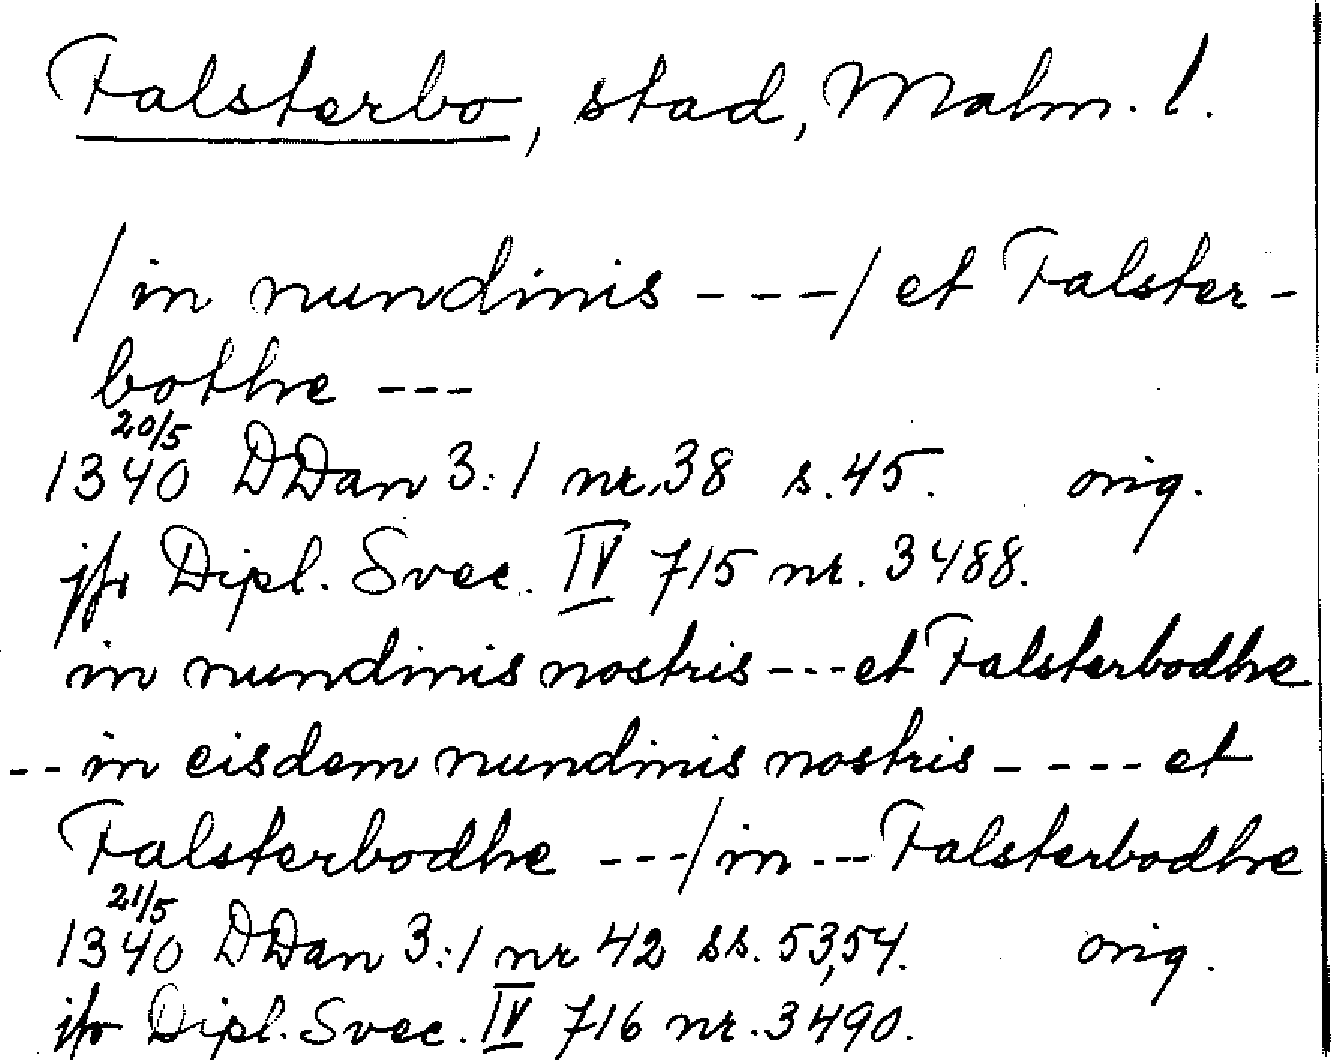 Falsterbo, stad, Malm. l.
/in nundinis ---/ et Falster-
bothe ---
20/5
1340 DDan 3:1 nr.38 s.45. orig.
jfr Dipl. Svec. IV 715 nr. 3488.
in nundinis nostris --- et Falsterbodhe
-- in eisdem nundinis nostris ---- et
Falsterbodhe ---/in --- Falsterbodhe
21/5
1340 DDan 3:1 nr 42 ss. 53,54. orig.
jfr Dipl. Svec. IV 716 nr. 3490.